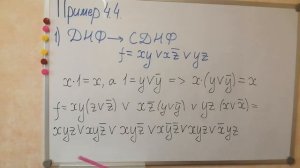 Пример 4.4.
1) ДНФ → СДНФ
f = xy ∨ xz̄ ∨ yz
x·1 = x, а 1 = y∨ȳ => x·(y∨ȳ) = x
f = xy(z∨z̄) ∨ xz̄(y∨ȳ) ∨ yz(x∨x̄) =
xyz∨xyz̄ ∨ xyz̄ ∨ xȳz̄∨xyz∨x̄yz